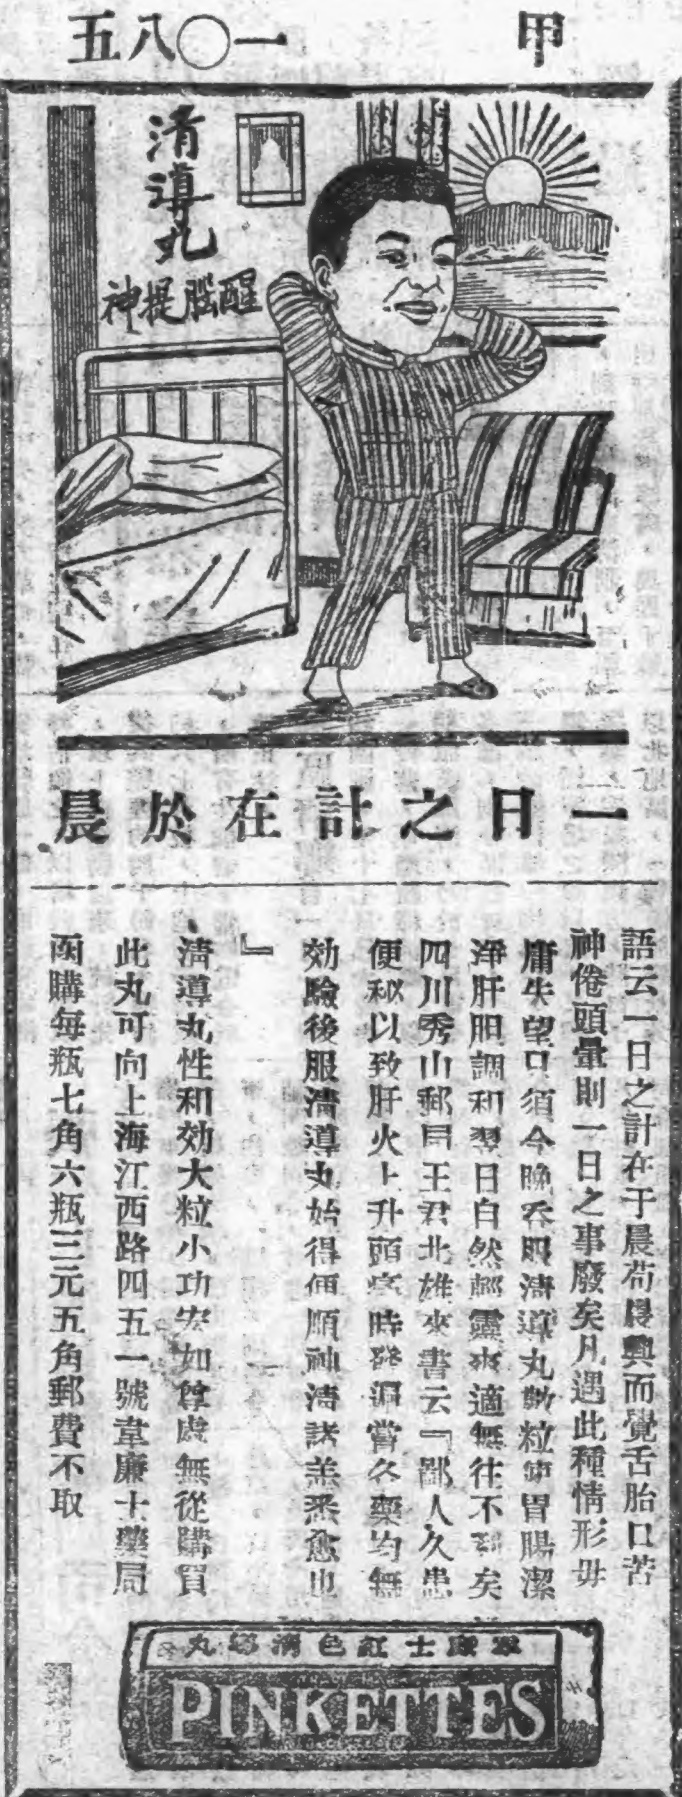 甲
一〇八五
清導丸
醒腦提神
一日之計在於晨
語云一日之計在于晨苟晨興而覺舌胎口苦
神倦頭暈則一日之事廢矣凡遇此種情形毋
庸失望只須今晚吞服清導丸數粒使胃腸潔
淨肝胆調和翌日自然靈爽適無往不利矣
四川秀山郵局王君北雄來書云『鄙人久患
便秘以致肝火上升頭疼時發遍嘗各藥均無
効驗後服清導丸始得便順神清諸恙悉愈也
』
清導丸性和効大粒小功宏如尊處無從購買
此丸可向上海江西路四五一號韋廉士藥局
函購每瓶七角六瓶三元五角郵費不取
韋廉士紅色清導丸
PINKETTES